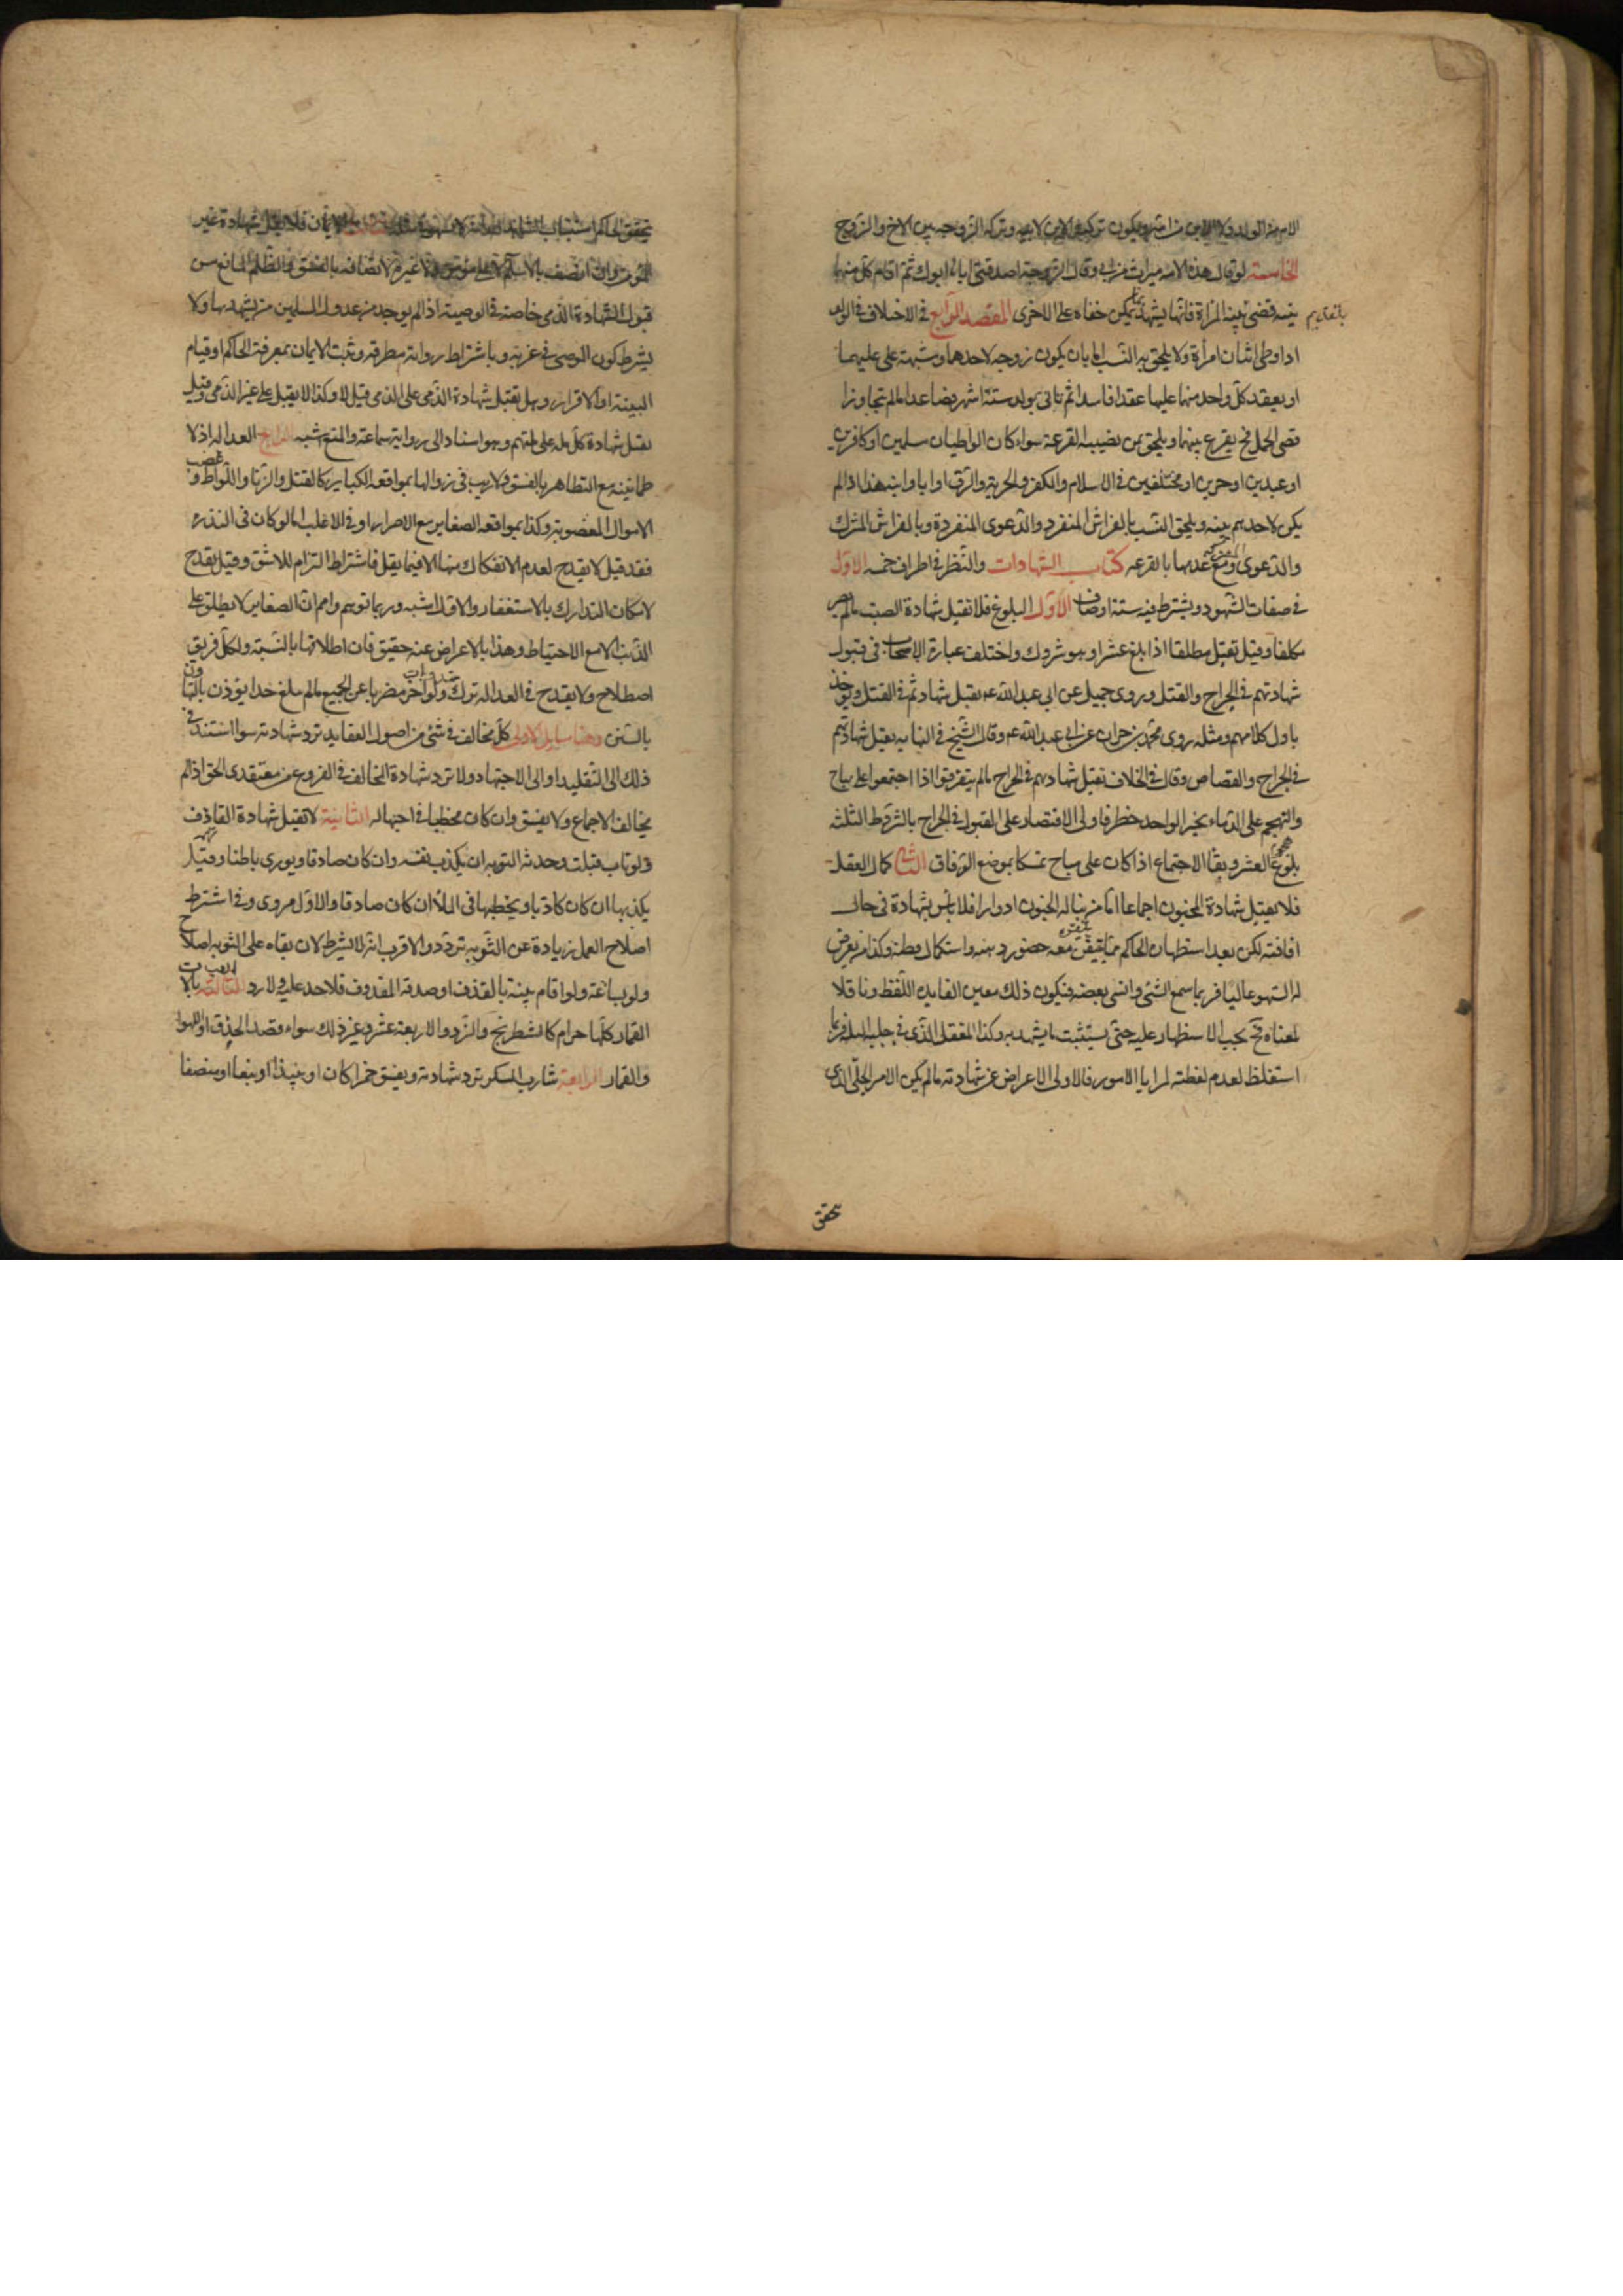 الام من الولد ولا الابن من امه ويكون تركة الابن لابيه وتركة الزوجة بين الاخ والزوج
الخامسة لو قال هذه الامة ميراث من ابي وقالت الزوجة اصدقني اياها ابوك ثم اقام كل منهما
بينة قضي ببينة المراة فانها يشهد بما يمكن خفاه على الاخرى المقصد الرابع في الاختلاف في الولد
اذا وطئ اثنان امراة ولا يلحق به النسب اما بان يكون زوجة لاحدهما ومشتبهة على عليهما
او يعقد كل واحد منهما عليها عقدا فاسدا ثم تاتي بولد ستة اشهر فصاعدا ما لم يتجاوز ا
قصى الحمل فح يقرع بينهما ويلحق بمن يصيبه القرعة سواء كان الواطيان مسلمين او كافرين
او عبدين او حرين او مختلفين في الاسلام والكفر والحرية والرق او ابا وابنه هذا اذا لم
يكن لاحدهم بينة ويلحق النسب بالفراش المنفرد والدعوى المنفردة وبالفراش المشترك
والدعوى المشتركة ومع عدمها بالقرعه كتاب الشهادات والنظر في اطراف خمسه الاول
في صفات الشهود ويشترط فيه ستة اوصاف الاول البلوغ فلا تقبل شهادة الصبي ما لم يصر
مكلفا وقيل تقبل مطلقا اذا بلغ عشرا وهو متروك واختلف عبارة الاصحاب في قبول
شهادتهم في الجراح والقتل وروى جميل عن ابي عبدالله ع تقبل شهادتهم في القتل ويوخذ
باول كلامهم ومثله روى محمد بن حمران عن ابي عبدالله ع وقال الشيخ في النهايه يقبل شهادتهم
في الجراح والقصاص وقال في الخلاف تقبل شهادتهم في الجراح ما لم يتفرقوا اذا اجتمعوا على مباح
والتهجم على الدماء بخبر الواحد خطر فاولى الاقتصار على القبول في الجراح بالشروط الثلثه
بلوغ العشر وبقا الاجتماع اذا كان على مباح تمسكا بموضع الوفاق الثاني كمال العقل
فلا يقبل شهادة المجنون اجماعا اما من يناله الجنون ادوارا فلا باس بشهادة في حال
افاقته لكن بعد استظهار الحاكم بما يتيقن معه حضور ذهنه واستكمال فطنته وكذا من يعرض
له السهو غالبا فربما سمع الشئ وانسي بعضه فيكون ذلك مغيرا لفايدة اللفظ وناقلا
لمعناه فح يجب الاستظهار عليه حتى يستثبت ما يشهد به وكذا المغفل الذي في جبلته البله فربما
استغلط لعدم تفطنه لمزايا الامور فالاولى الاعراض عن شهادته ما لم يكن الامر الجلي الذي
بالتقديم
تحقق
تحقق الحاكم استثبات الشاهد الايمان فلا تقبل شهادة غير
المؤمن وان اتصف بالاسلام لا على مؤمن ولا غيره لاتصافه بالفسق والظلم المانع من
قبول الشهادة الذمي خاصة في الوصية اذا لم يوجد من عدول المسلمين من يشهد بها ولا
يشترط كون الموصي في غربة وباشتراط رواية مطرحة ويثبت الايمان بمعرفة الحاكم او قيام
البينة او الاقرار وهل تقبل شهادة الذمي على الذمي قيل لا وكذا لا يقبل على غير الذمي وقيل
تقبل شهادة كل ملة على ملتهم وهو استناد الى رواية سماعة والمنع اشبه الرابع العداله اذ لا
طمانينة مع التظاهر بالفسق ولا ريب في زوالها بمواقعة الكباير كالقتل والزنا واللواط وغصب
الاموال المعصومة وكذا بمواقعه الصغاير مع الاصرار او في الاغلب اما لو كان في الندره
فقد قيل لا يقدح لعدم الانفكاك منها الا فيما يقل فاشتراطه التزام للاشق وقيل يقدح
لامكان التدارك بالاستغفار والاول اشبه وربما توهم واهم ان الصغاير لا يطلق على
الذنب الا مع الاحباط وهذا بالاعراض عنه حقيق فان اطلاقها بالنسبة ولكل فريق
اصطلاح ولا يقدح في العداله ترك المندوبات ولو اصر مضربا عن الجميع ما لم يبلغ حدا يؤذن بالتهاون
بالسنن وهنا مسايل الاولى كل مخالف في شئ من اصول العقايد ترد شهادته سواء استند في
ذلك الى التقليد او الى الاجتهاد ولا ترد شهادة المخالف في الفروع من معتقدي الحق اذا لم
يخالف الاجماع ولا يفسق وان كان مخطيا في اجتهاده الثانية لا تقبل شهادة القاذف
ولو تاب قبلت وحد التوبة ان يكذب نفسه وان كان صادقا ويوري باطنا وقيل
يكذبها ان كان كاذبا ويخطيها في الملأ ان كان صادقا والاول مروي وفي اشتراط
اصلاح العمل زيادة عن التوبه تردد والاقرب انه لا يشترط لان بقاه على التوبه اصلاح
ولو ساعة ولو اقام بينة بالقذف او صدقه المقذوف فلا حد عليه ولا رد الثالثة اللعب بالات
القمار كلها حرام كالشطرنج والنرد والاربعة عشر وغير ذلك سواء قصد الحذق او اللهو
والقمار الرابعة شارب المسكر ترد شهادته ويفسق خمرا كان او نبيذا او بتعا او منصفا